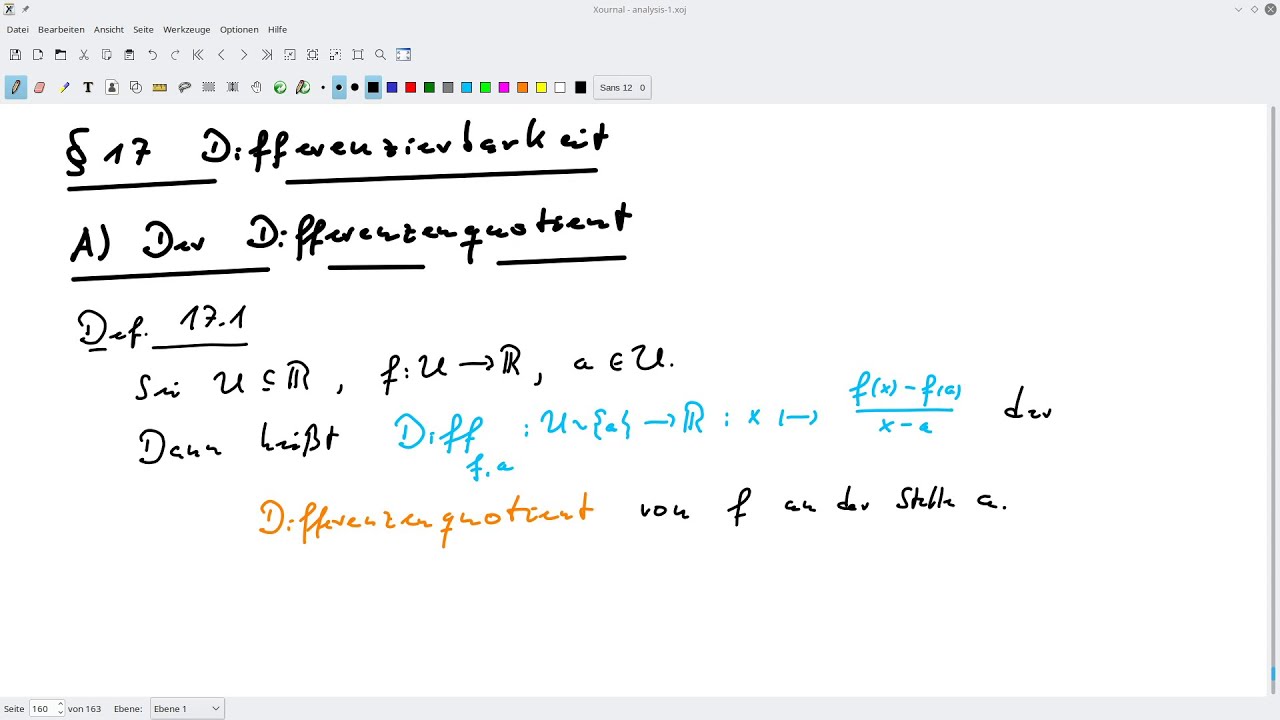 Xournal - analysis-1.xoj
Datei Bearbeiten Ansicht Seite Werkzeuge Optionen Hilfe
Sans 12 0
§ 17 Differenzierbarkeit
A) Der Differenzenquotient
Def. 17.1
Sei U ⊆ ℝ, f: U → ℝ, a ∈ U.
Dann heißt Diff_{f,a} : U∖{a} → ℝ : x ↦ (f(x) − f(a))/(x − a) der
Differenzenquotient von f an der Stelle a.
Seite 160 von 163 Ebene: Ebene 1